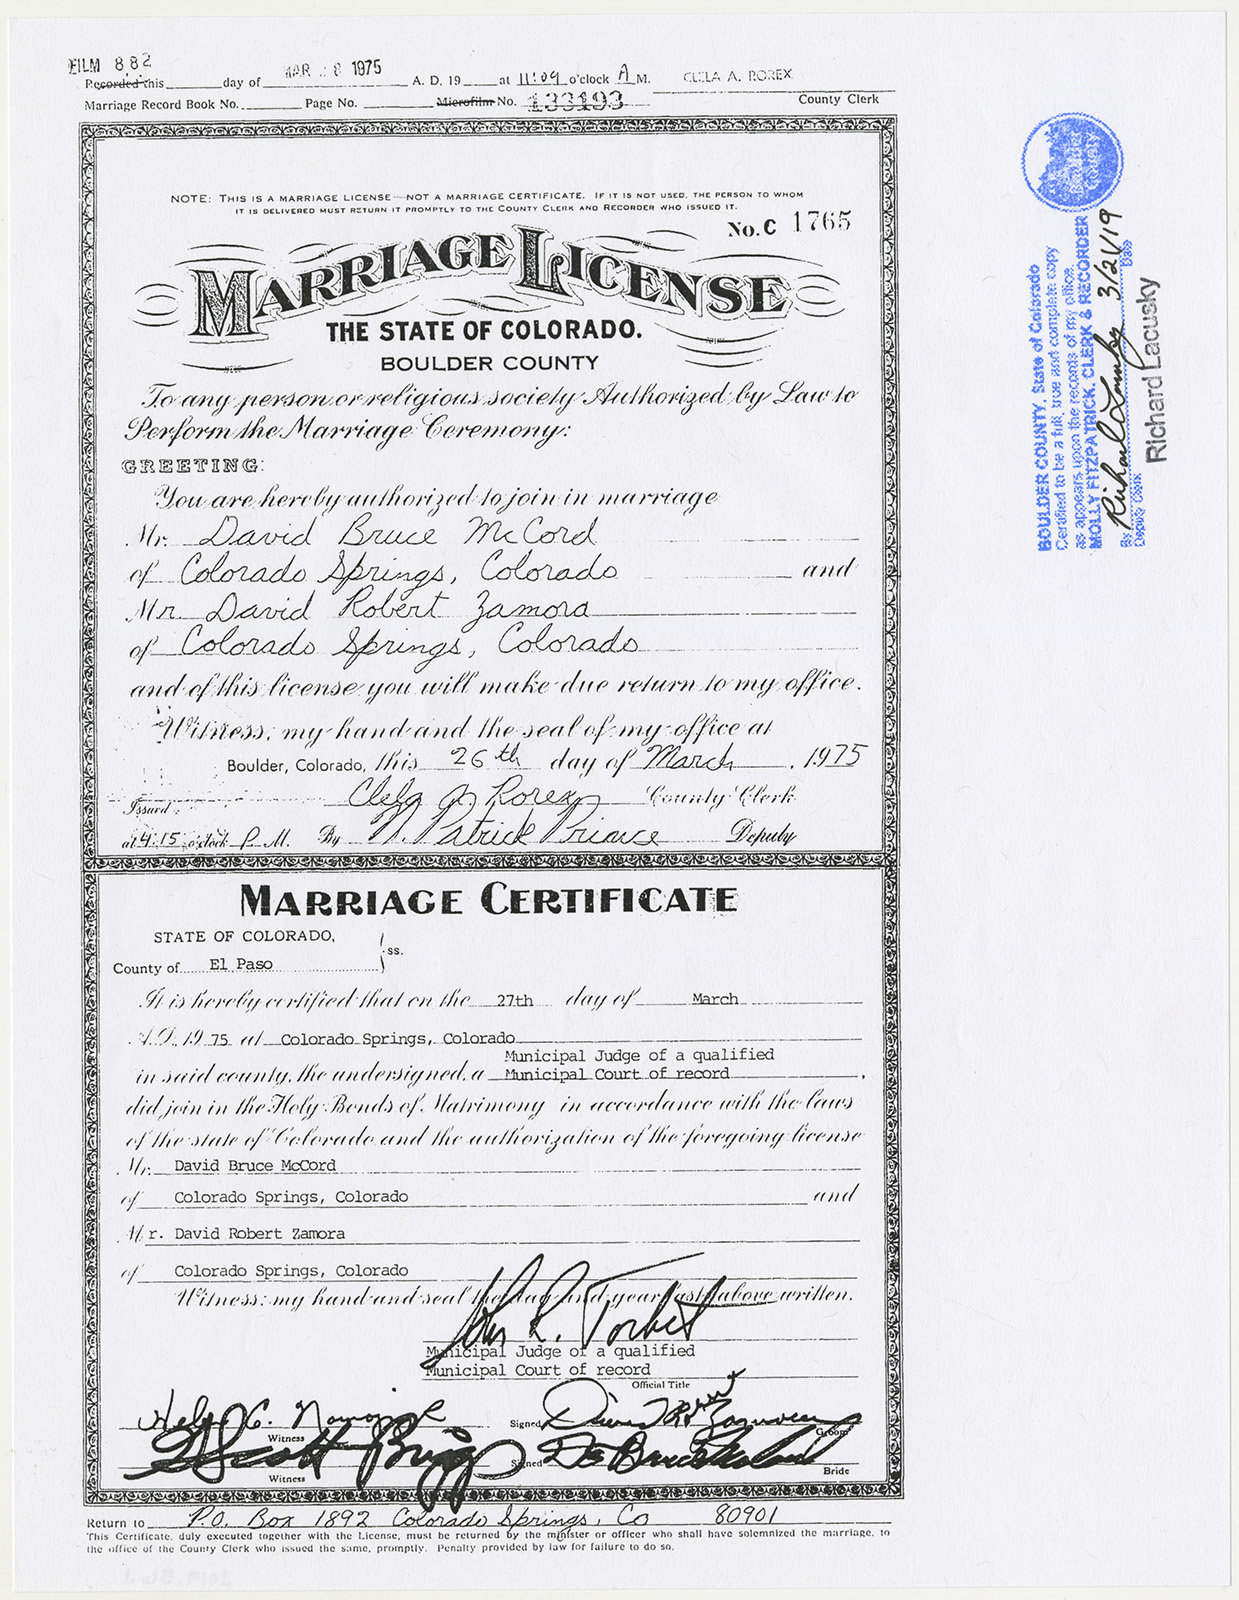 FILM 882
Recorded this day of MAR 28 1975 A. D. 19 at 11:09 o'clock A M. CLELA A. ROREX
Marriage Record Book No. Page No. Microfilm No. 133193 County Clerk
NOTE: THIS IS A MARRIAGE LICENSE—NOT A MARRIAGE CERTIFICATE. IF IT IS NOT USED, THE PERSON TO WHOM
IT IS DELIVERED MUST RETURN IT PROMPTLY TO THE COUNTY CLERK AND RECORDER WHO ISSUED IT.
No. C 1765
MARRIAGE LICENSE
THE STATE OF COLORADO.
BOULDER COUNTY
To any person or religious society Authorized by Law to
Perform the Marriage Ceremony:
GREETING:
You are hereby authorized to join in marriage
Mr. David Bruce McCord
of Colorado Springs, Colorado and
Mr. David Robert Zamora
of Colorado Springs, Colorado
and of this license you will make due return to my office.
Witness, my hand and the seal of my office at
Boulder, Colorado, this 26th day of March, 1975
Clela A. Rorex County Clerk
Issued
at 4:15 o'clock P. M. By N. Patrick Prince Deputy
MARRIAGE CERTIFICATE
STATE OF COLORADO,
ss.
County of El Paso
It is hereby certified that on the 27th day of March
A.D. 1975 at Colorado Springs, Colorado
Municipal Judge of a qualified
in said county, the undersigned, a Municipal Court of record,
did join in the Holy Bonds of Matrimony in accordance with the laws
of the state of Colorado and the authorization of the foregoing license
Mr. David Bruce McCord
of Colorado Springs, Colorado and
Mr. David Robert Zamora
of Colorado Springs, Colorado
Witness: my hand and seal the day and year last above written.
Municipal Judge of a qualified
Municipal Court of record
Official Title
Signed David Robert Zamora
Witness Groom
Scott Briggs Signed David Bruce McCord
Witness Bride
Return to P.O. Box 1892 Colorado Springs, Co 80901
This Certificate, duly executed together with the License, must be returned by the minister or officer who shall have solemnized the marriage, to
the office of the County Clerk who issued the same, promptly. Penalty provided by law for failure to do so.
Boulder County
BOULDER COUNTY, State of Colorado
Certified to be a full, true and complete copy
as appears upon the records of my office.
MOLLY FITZPATRICK, CLERK & RECORDER
By Richard Lacusky 3/21/19
Deputy Clerk Date
Richard Lacusky